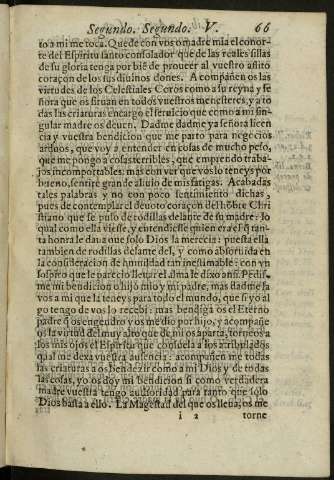 Segundo. Segundo. V. 66
to a mi me toca. Quede con vos o madre mia el conor-
te del Espiritu santo consolador que de las reales sillas
de su gloria tenga por biẽ de proueer al vuestro afito
coraçon de los sus diuinos dones. A compañen os las
virtudes de los Celestiales Coros como a su reyna y se
ñora que os siruan en todos vuestros menesteres, y a to
das las criaturas encargo el seruicio que como a mi sin-
gular madre os deuen. Dadme dadme ya señora licen
cia y vuestra bendicion que me parto para negocios
arduos, que voy a entender en cosas de mucho peso,
que me pongo a cosas terribles, que emprendo traba-
jos incomportables: mas con ver que vos lo teneys por
bueno, sentire gran de aliuio de mis fatigas. Acabadas
tales palabras y no con poco sentimiento dichas,
pues de contemplar el deuoto coraçon del hõbre Chri
stiano que se puso de rodillas delante de su madre: lo
qual como ella viesse, y entendiesse quien era el q̃ tan-
ta honra le daua que solo Dios la merecia: puesta ella
tambien de rodillas delante del, y como absortida en
la consideracion de humildad tan inestimable: con vn
sospiro que le parecio lleuar el alma le dixo ansi. Pedis-
me mi bendicion o hijo mio y mi padre, mas dadme la
vos a mi que la teneys para todo el mundo, que si yo al
go tengo de vos lo recebi: mas bendiga os el Eterno
padre q̃ os engendro y os me dio por hijo, y acompañe
os la virtud del muy alto que de mi os aparta, torne os a
los mis ojos el Espiritu que consuela a los atribulados
qual me dexa vuestra ausencia: acompañen me todas
las criaturas a os bendezir como a mi Dios y de todas
las cosas, yo os doy mi bendicion si como verdadera
madre vuestra tengo authoridad para tanto que solo
Dios basta a ello. La Magestad del que os lleua, os me
i 2 torne